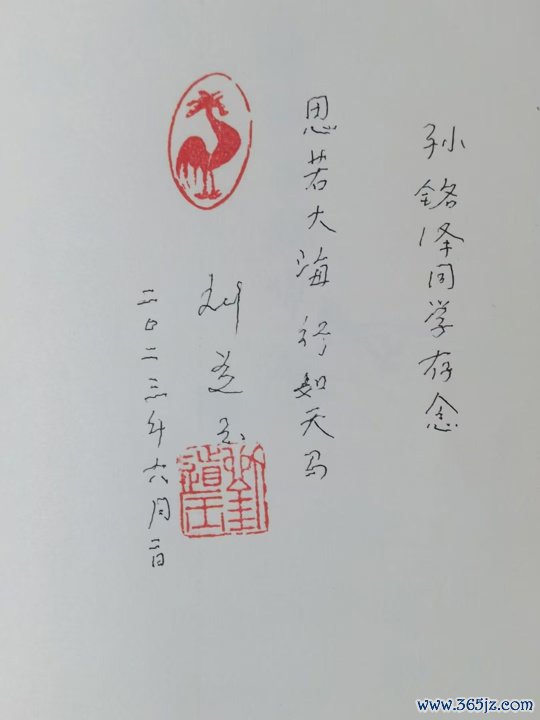 孙铭泽同学存念
思若大海 行如天马
刘道玉
二〇二三年六月二日
劉道玉
www.365jz.com